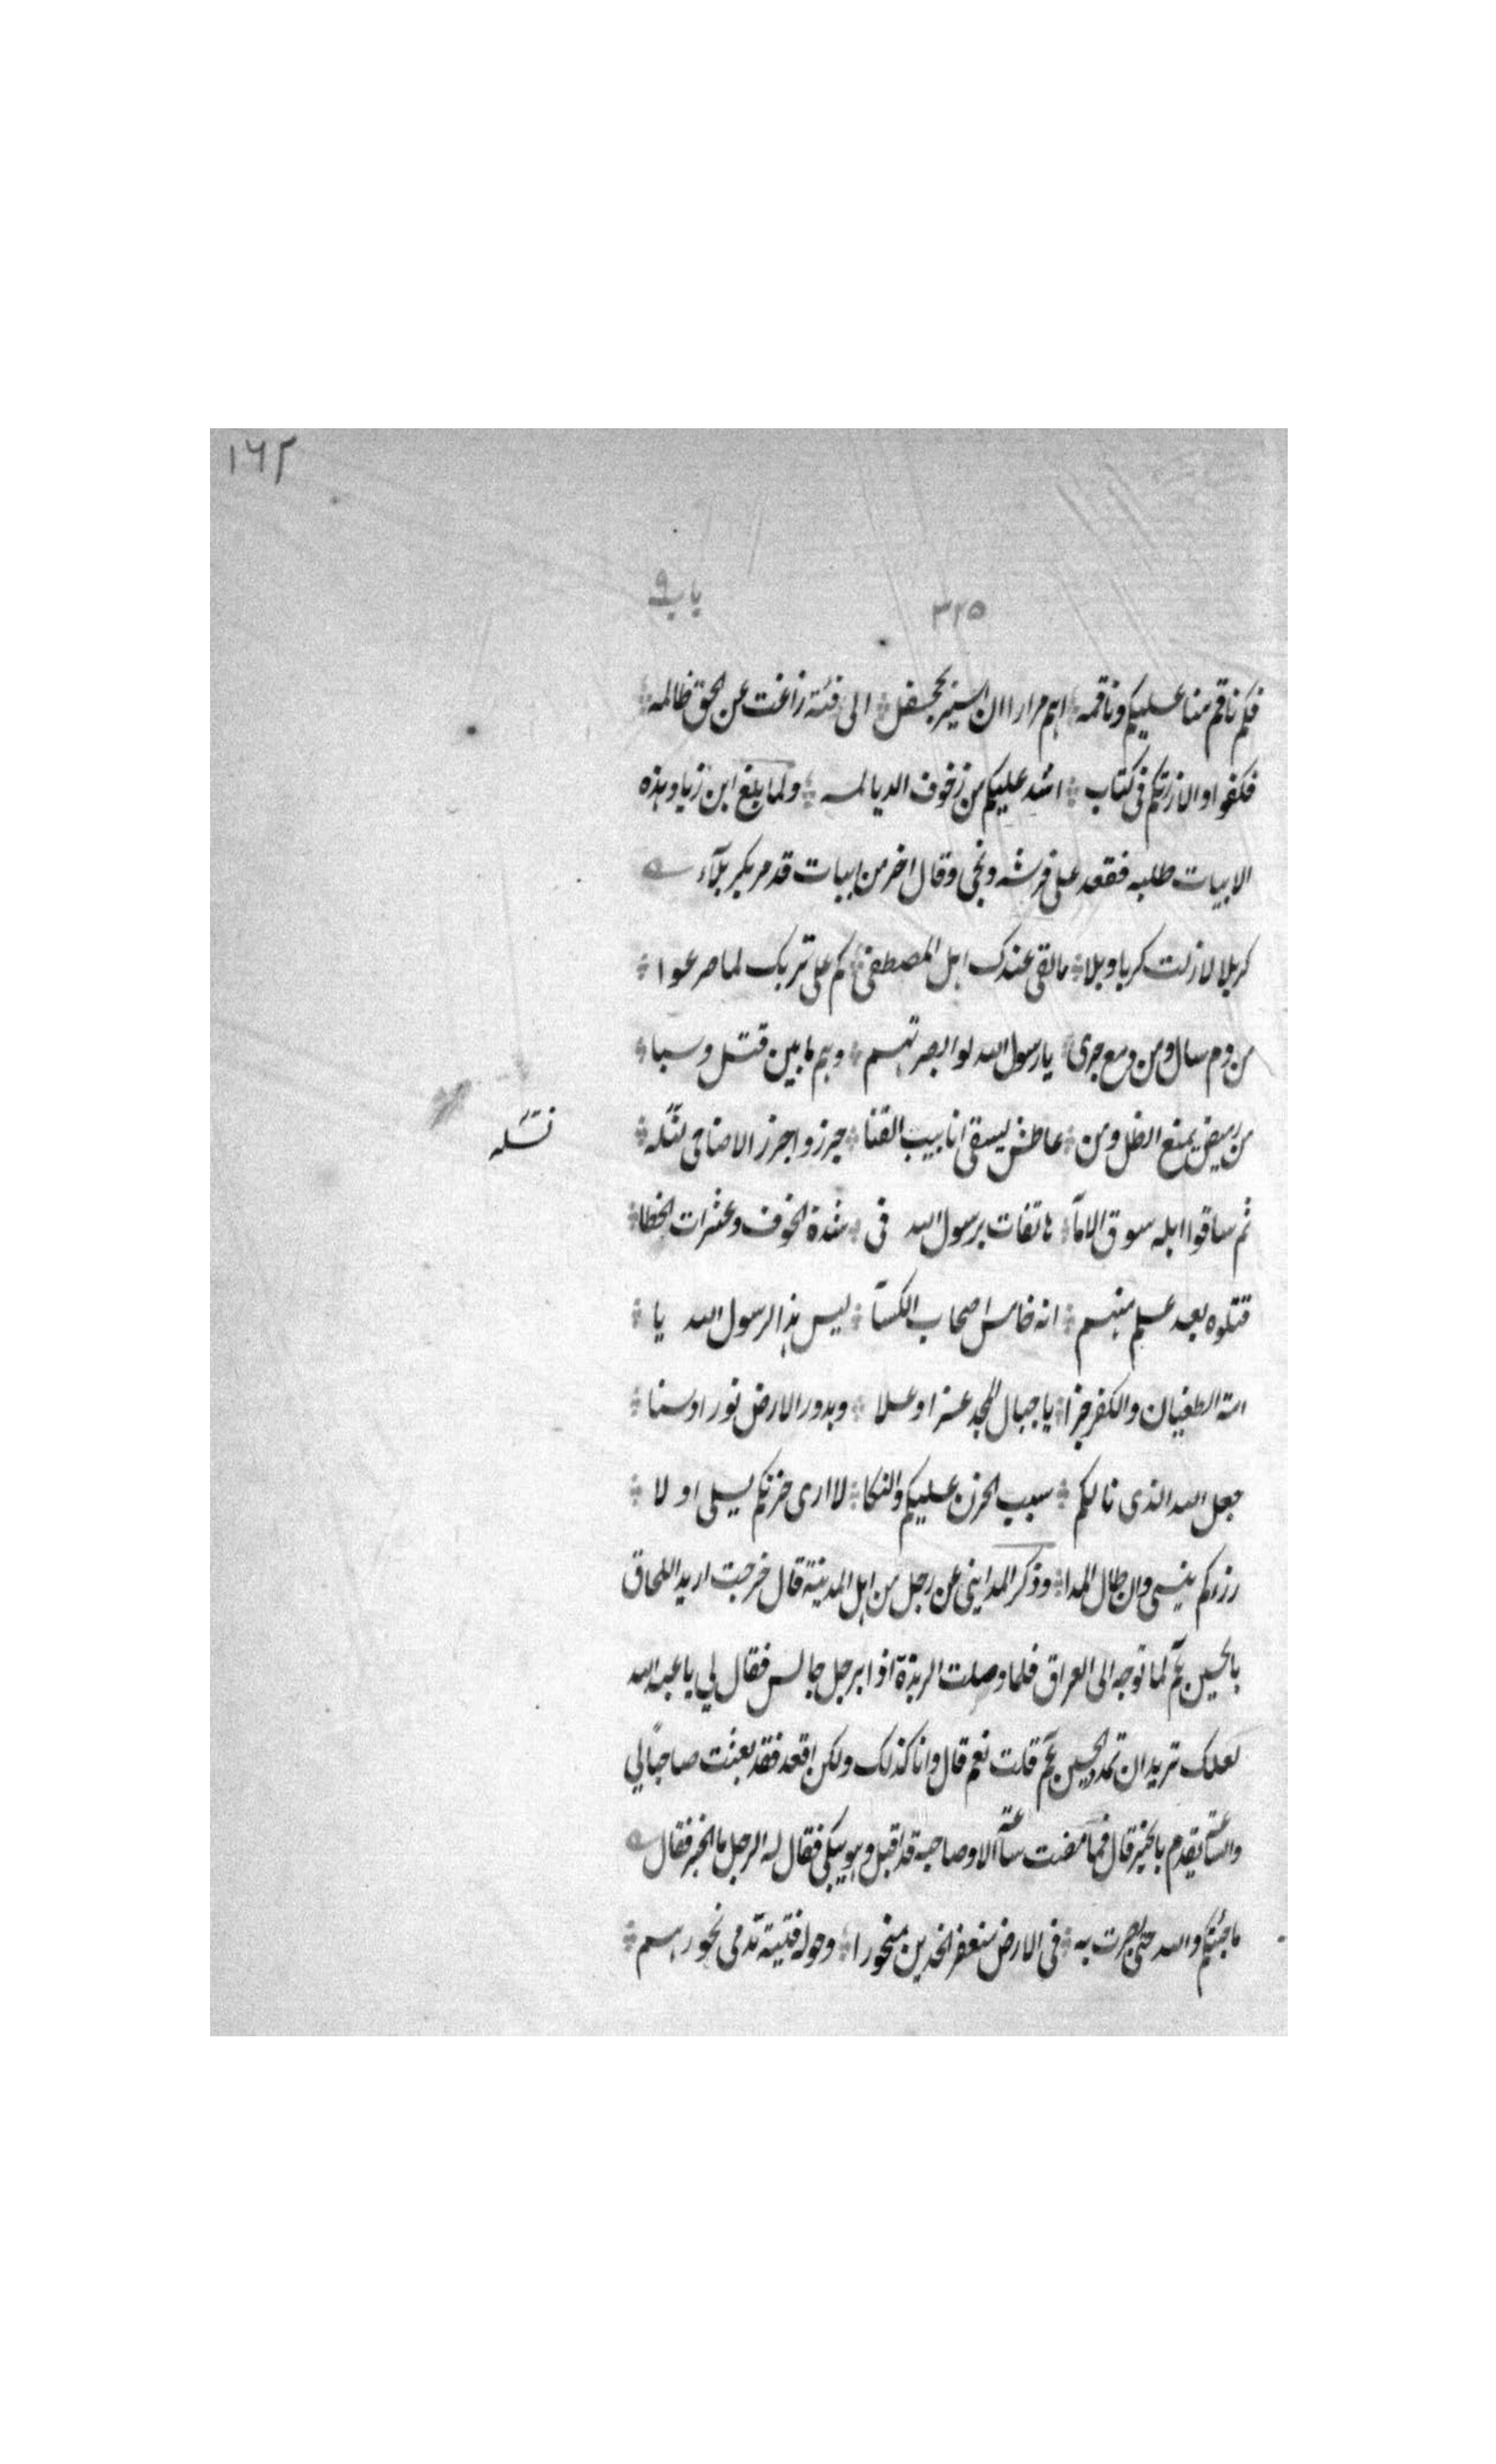 ١٦٢
٣٢٥
باب ٩
فكم ناقم منا عليكم وناقمه ؞ اهم مرارا ان اسير بجحفل ؞ الى فئة زاغت عن الحق ظالمه ؞
فكفوا والا زرتكم فى كتايب ؞ اشد عليكم من زخوف الديالمه ؞ ولما بلغ ابن زياد هذه
الابيات طلبه فقعد على فرشه ونجى وقال اخر من ابيات قد مر بكربلآء
كربلا لازلت كربا وبلا ؞ ما لقى عندك اهل المصطفى ؞ كم على تربك لما صرعوا ؞
من دم سال ومن دمع جرى ؞ يا رسول الله لو ابصرتهم ؞ وهم ما بين قتل وسبا ؞
من رميض يمنع الظل ومن ؞ عاطش يسقى انابيب القنا ؞ جزروا جزر الاضاحى نسله ؞
نسله
ثم ساقوا اهله سوق الامآ ؞ هاتفات برسول الله فى ؞ شدة الخوف وعثرات الخطا ؞
قتلوه بعد علم منهم ؞ انه خامس اصحاب الكسآ ؞ ليس هذا لرسول الله يا ؞
امة الطغيان والكفر جزا ؞ يا جبال المجد عزا وعلا ؞ وبدور الارض نورا وسنا ؞
جعل الله الذى نالكم ؞ سبب الحزن عليكم والبكا ؞ لا ارى حزنكم يسلى ولا ؞
رزءكم ينسى وان طال المدا ؞ وذكر المداينى عن رجل من اهل المدينة قال خرجت اريد اللحاق
بالحسين عم لما توجه الى العراق فلما وصلت الربذة اذا برجل جالس فقال لي يا عبد الله
لعلك تريد ان تمد الحسين عم قلت نعم قال وانا كذلك ولكن اقعد فقد بعثت صاحبا لي
والساعة يقدم بالخبر قال فما مضت ساعة الا وصاحبه قد اقبل وهو يبكي فقال له الرجل ما الخبر فقال
ما جئتكم والله حتى بصرت به ؞ فى الارض منعفر الخدين منحورا ؞ وحوله فتية تدمى نحورهم ؞